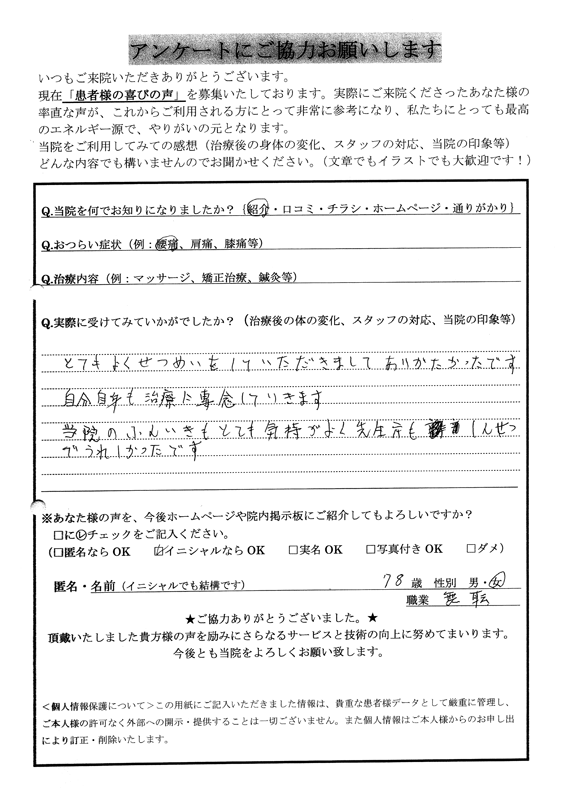 アンケートにご協力お願いします
いつもご来院いただきありがとうございます。
現在「患者様の喜びの声」を募集いたしております。実際にご来院くださったあなた様の
率直な声が、これからご利用される方にとって非常に参考になり、私たちにとっても最高
のエネルギー源で、やりがいの元となります。
当院をご利用してみての感想（治療後の身体の変化、スタッフの対応、当院の印象等）
どんな内容でも構いませんのでお聞かせください。（文章でもイラストでも大歓迎です！）
Q.当院を何でお知りになりましたか？｛紹介・口コミ・チラシ・ホームページ・通りがかり｝
Q.おつらい症状（例：腰痛、肩痛、膝痛等）
Q.治療内容（例：マッサージ、矯正治療、鍼灸等）
Q.実際に受けてみていかがでしたか？（治療後の体の変化、スタッフの対応、当院の印象等）
とてもよくせつめいをしていただきまして ありがたかったです
自分自身も治療に専念していきます
当院のふんいきもとても気持がよく先生方も しんせつ
でうれしかったです
※あなた様の声を、今後ホームページや院内掲示板にご紹介してもよろしいですか？
□に☑チェックをご記入ください。
（□匿名ならOK ☑イニシャルならOK □実名OK □写真付きOK □ダメ）
匿名・名前（イニシャルでも結構です） 78歳 性別 男・女
職業
★ご協力ありがとうございました。★
頂戴いたしました貴方様の声を励みにさらなるサービスと技術の向上に努めてまいります。
今後とも当院をよろしくお願い致します。
＜個人情報保護について＞この用紙にご記入いただきました情報は、貴重な患者様データとして厳重に管理し、
ご本人様の許可なく外部への開示・提供することは一切ございません。また個人情報はご本人様からのお申し出
により訂正・削除いたします。